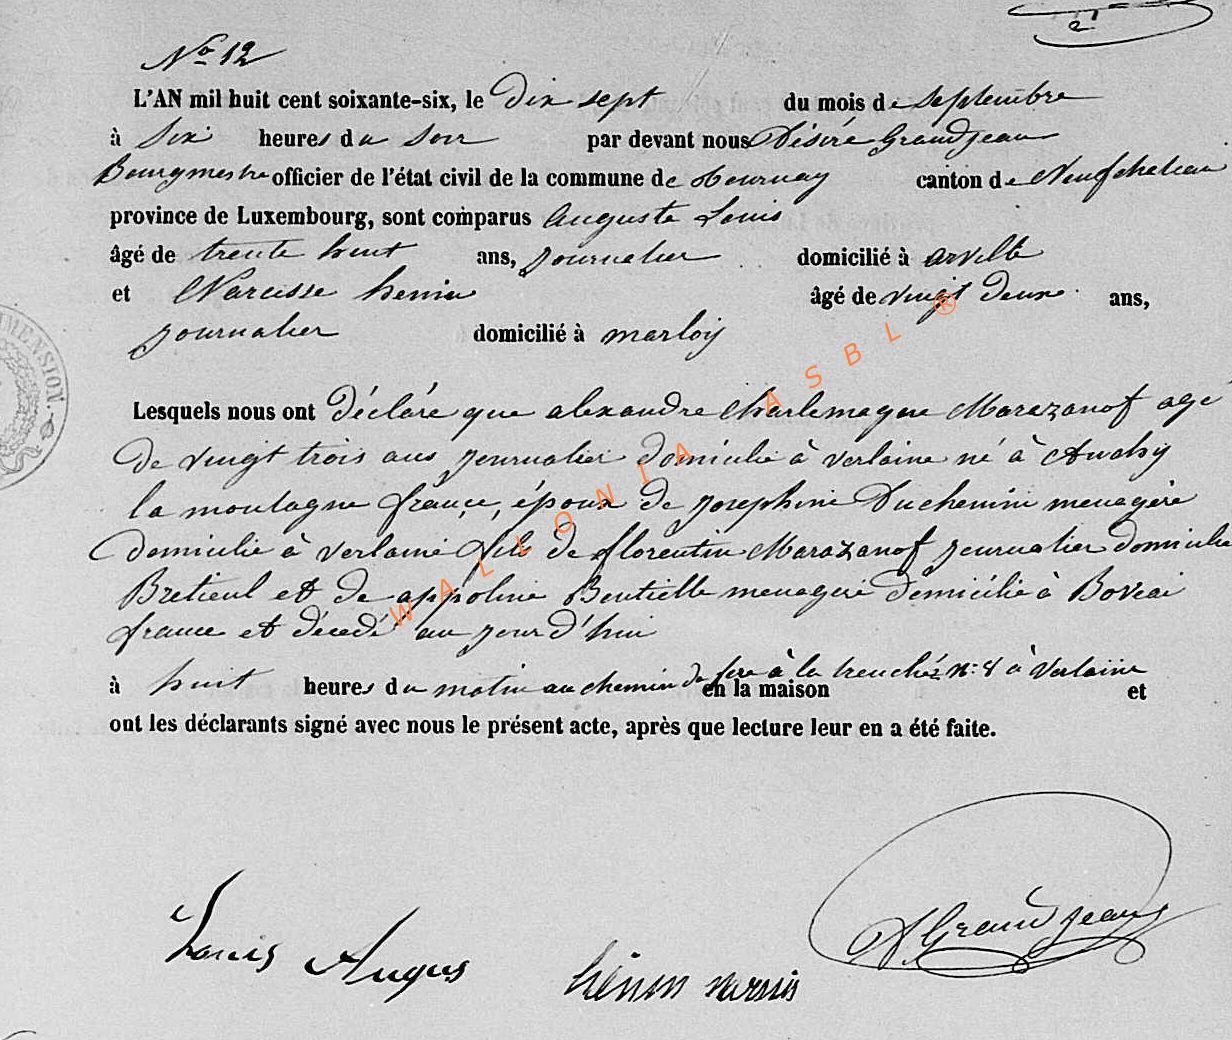 No 12
L'AN mil huit cent soixante-six, le dix sept du mois de septembre
à six heures du soir par devant nous Désiré Grandjean
Bourgmestre officier de l'état civil de la commune de tournay canton de Neufchateau
province de Luxembourg, sont comparus auguste Louis
âgé de trente huit ans, journalier domicilié à arville
et Narcisse henin âgé de vingt deux ans,
journalier domicilié à marloy
Lesquels nous ont déclaré que alexandre charlemagne Marazanof age
de vingt trois ans journalier domicilié à verlaine né à Auchy
la montagne france, époux de josephine Duchenin menagère
domicilié à verlaine fils de florentin Marazanof journalier domicilié
Bretieul et de appoline Boutielle menagère domicilié à
france et décedé au jour d'hui
à huit heures du matin au chemin de fere à la trenchée n: 8 à Verlaine
en la maison et
ont les déclarants signé avec nous le présent acte, après que lecture leur en a été faite.
Louis Augus
hénin narsis
D Grandjean
MENSION.
WALLONIA ASBL ®